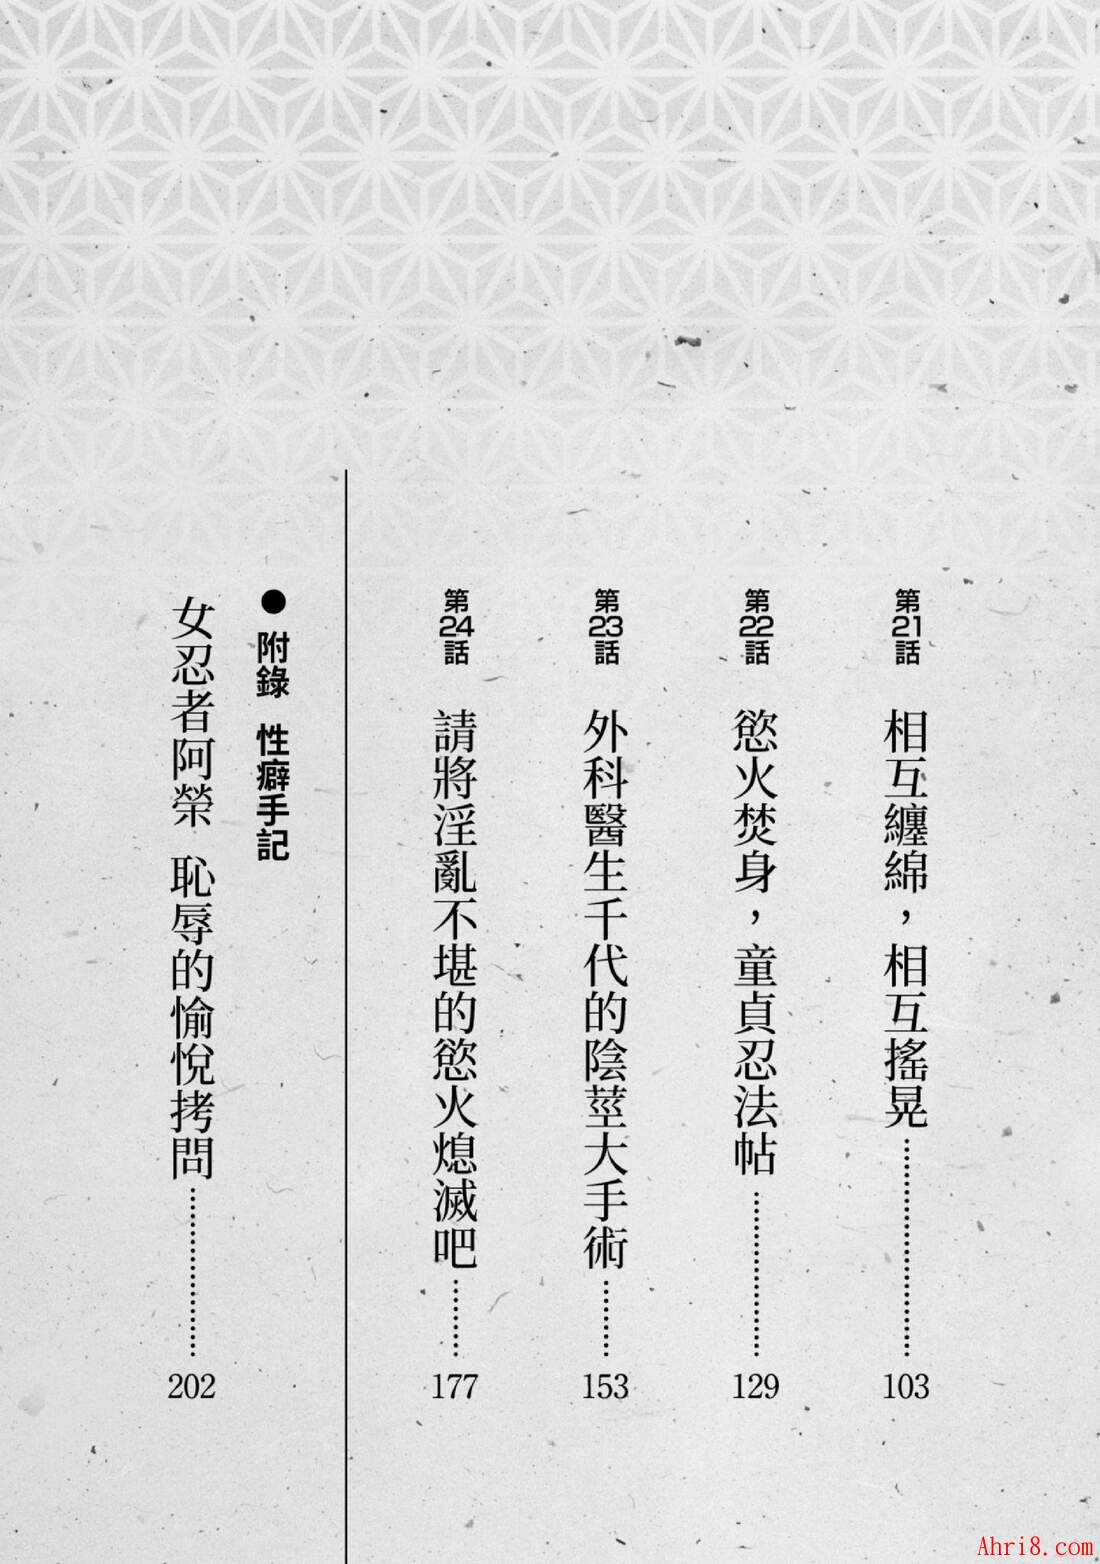 第21話 相互纏綿，相互搖晃………………103
第22話 慾火焚身，童貞忍法帖………………129
第23話 外科醫生千代的陰莖大手術………153
第24話 請將淫亂不堪的慾火熄滅吧………177
● 附錄 性癖手記
女忍者阿榮 恥辱的愉悅拷問………………202
Ahri8.com